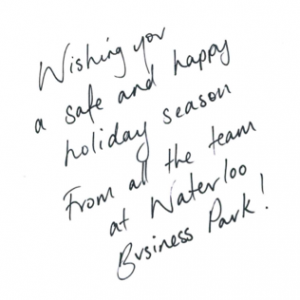 Wishing you
a safe and happy
holiday season
From all the team
at Waterloo
Business Park!